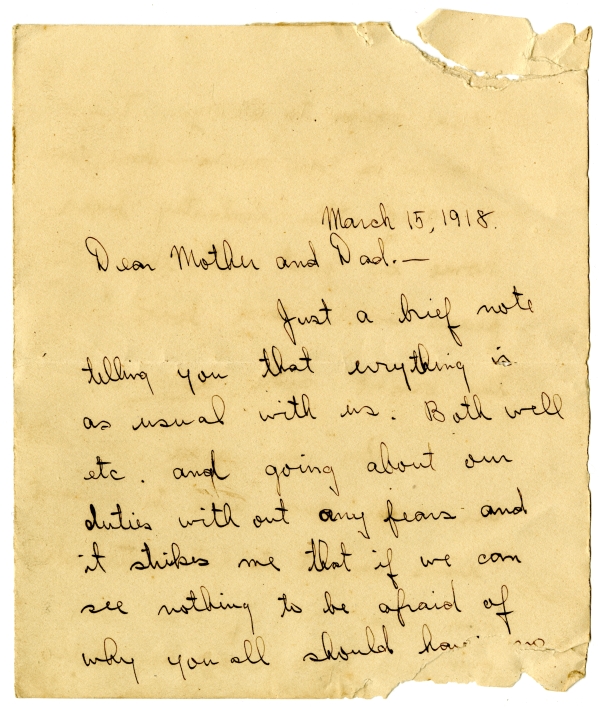 March 15, 1918.
Dear Mother and Dad.—
Just a brief note
telling you that evrything is
as usual with us. Both well
etc. and going about our
duties with out any fears and
it strikes me that if we can
see nothing to be afraid of
why you all should